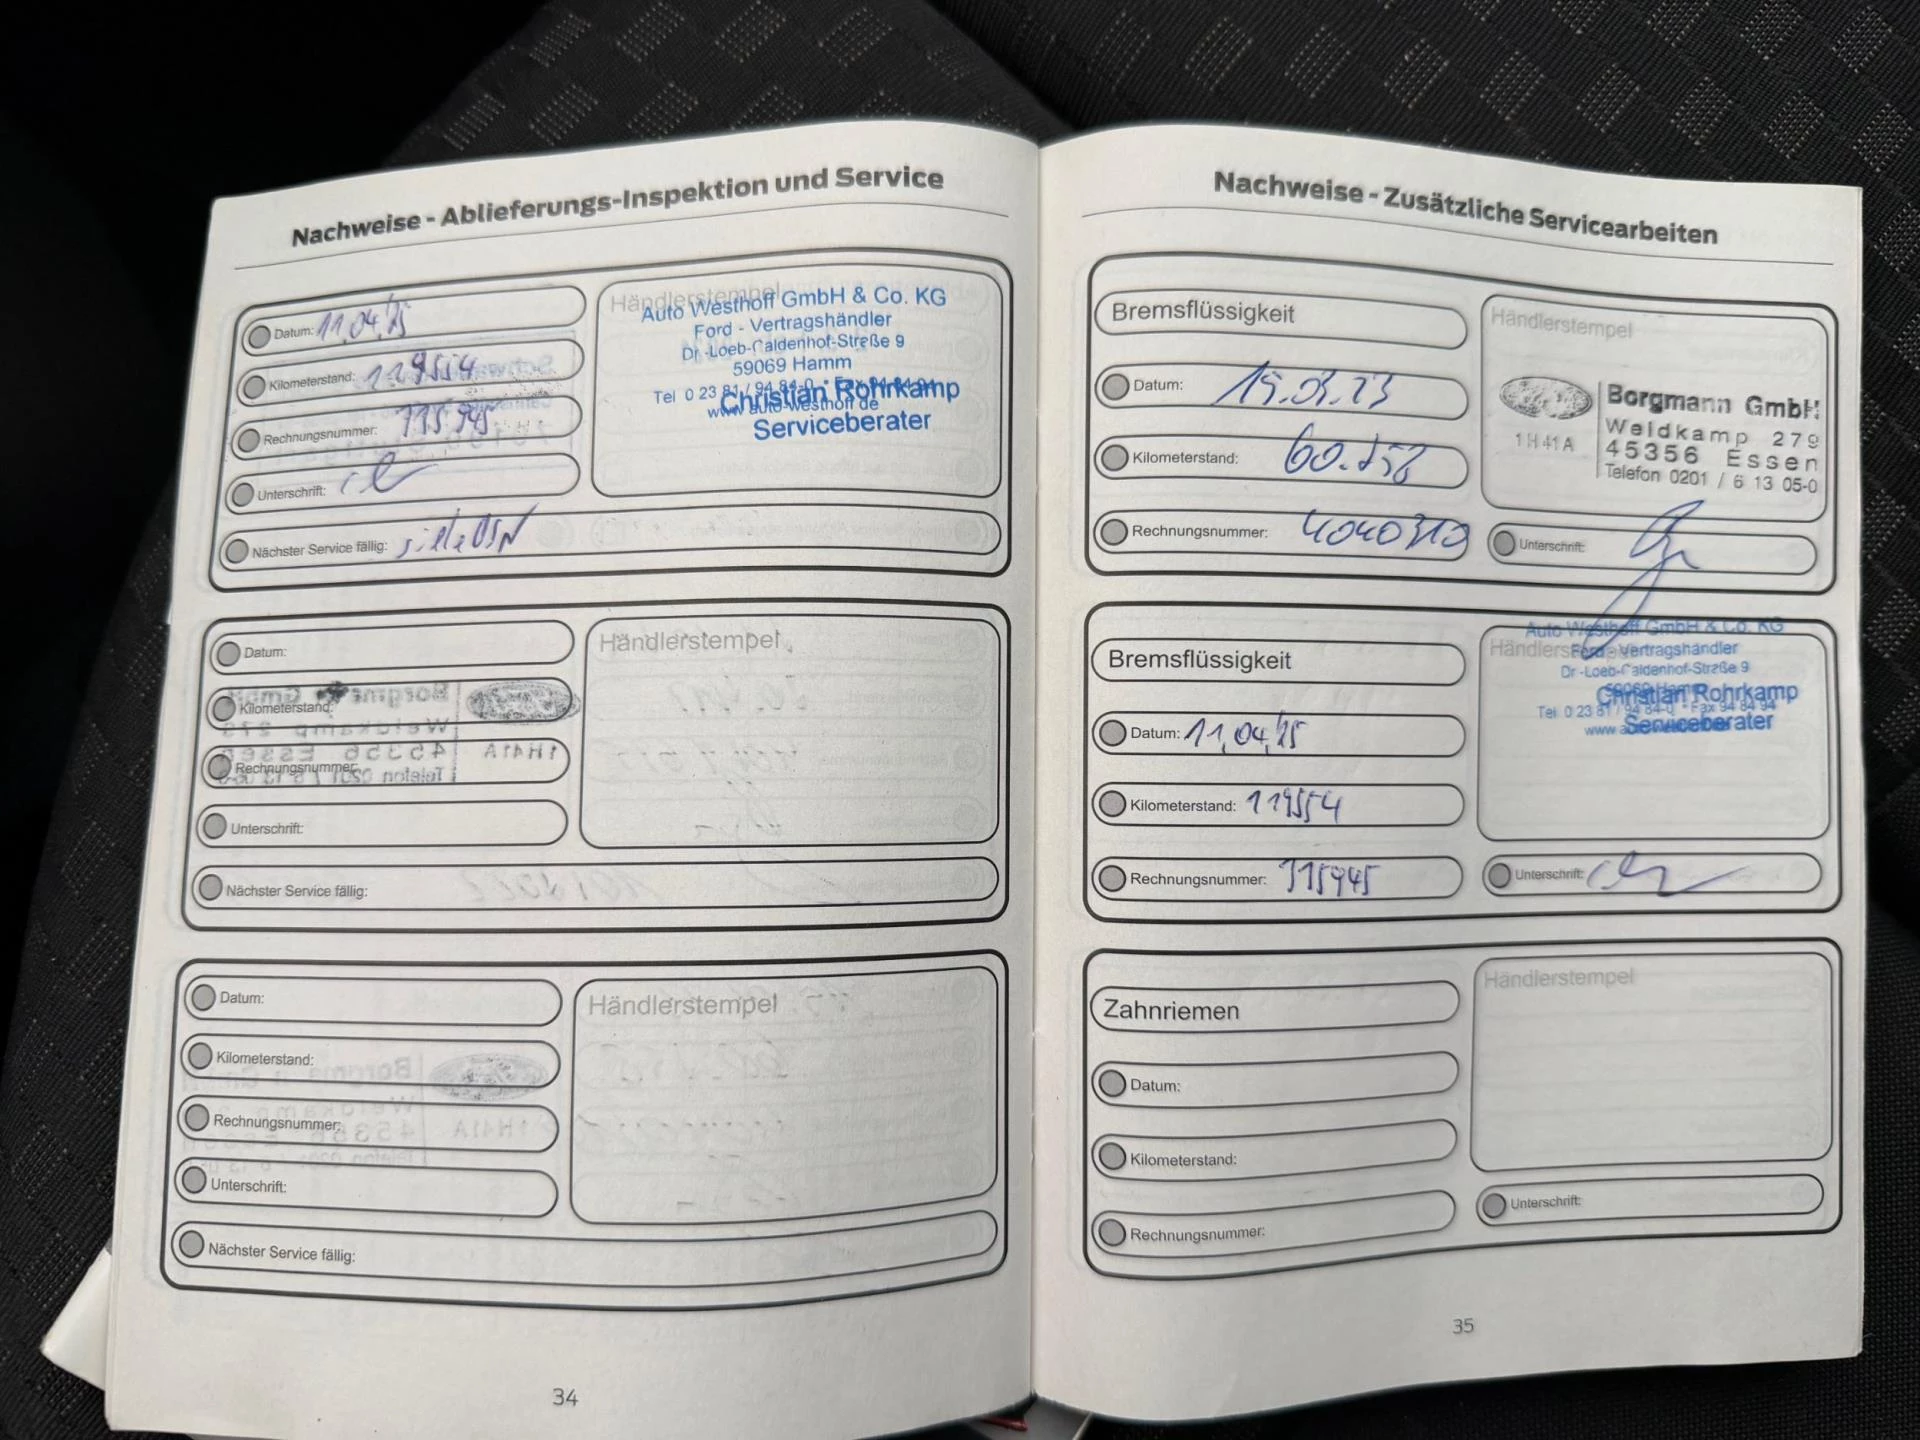 Nachweise - Ablieferungs-Inspektion und Service
Datum: 11.04.25
Kilometerstand: 119554
Rechnungsnummer: 315945
Unterschrift:
Nächster Service fällig: siehe DSN
Händlerstempel
Auto Westhoff GmbH & Co. KG
Ford - Vertragshändler
Dr.-Loeb-Caldenhof-Straße 9
59069 Hamm
Tel 0 23 81 / 94 84-0 · Fax 94 84 94
www.auto-westhoff.de
Christian Rohrkamp
Serviceberater
Datum:
Kilometerstand:
Rechnungsnummer:
Unterschrift:
Nächster Service fällig:
Händlerstempel
Datum:
Kilometerstand:
Rechnungsnummer:
Unterschrift:
Nächster Service fällig:
Händlerstempel
34
Nachweise - Zusätzliche Servicearbeiten
Bremsflüssigkeit
Datum: 15.03.23
Kilometerstand:
Rechnungsnummer: 4040310
Händlerstempel
1H41A
Borgmann GmbH
Weidkamp 279
45356 Essen
Telefon 0201 / 6 13 05-0
Unterschrift:
Bremsflüssigkeit
Datum: 11.04.25
Kilometerstand: 119554
Rechnungsnummer: 315945
Händlerstempel
Auto Westhoff GmbH & Co. KG
Ford - Vertragshändler
Dr.-Loeb-Caldenhof-Straße 9
59069 Hamm
Tel. 0 23 81 / 94 84-0 · Fax 94 84 94
Christian Rohrkamp
Serviceberater
Unterschrift:
Zahnriemen
Datum:
Kilometerstand:
Rechnungsnummer:
Händlerstempel
Unterschrift:
35